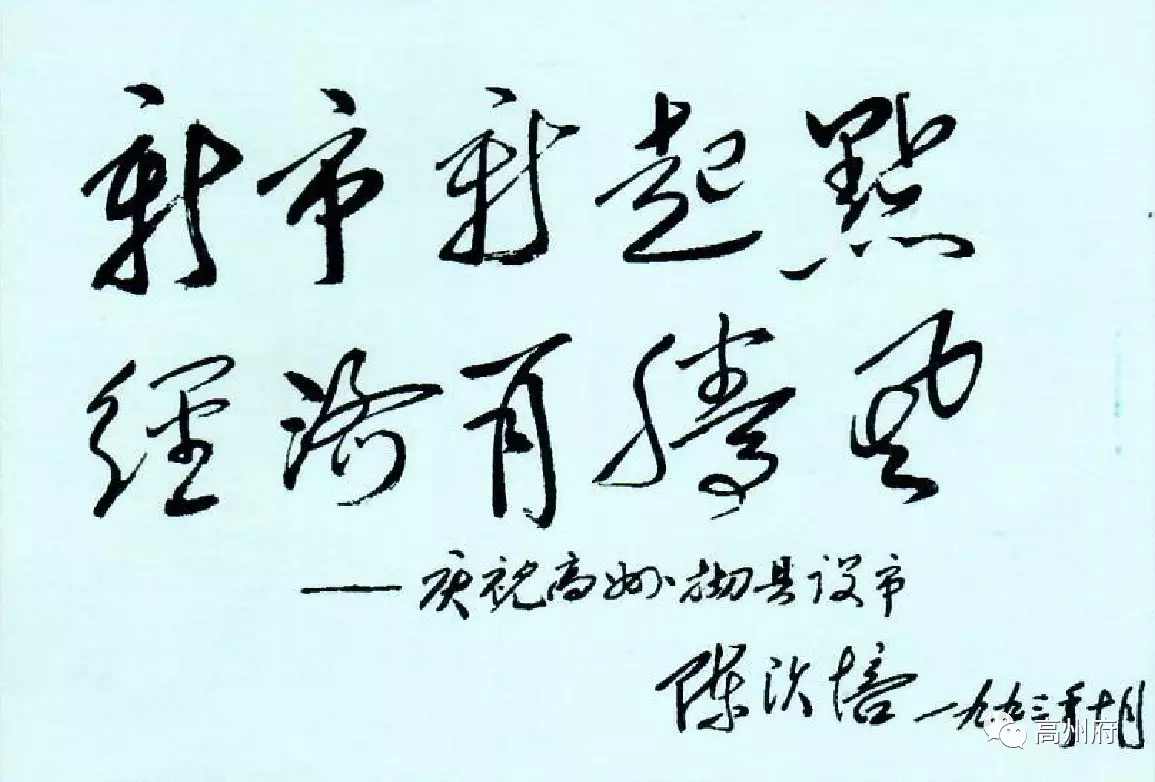 新市新起點
經濟有騰风
——庆祝高州撤县设市
陈次培 一九九三年十月
高州府